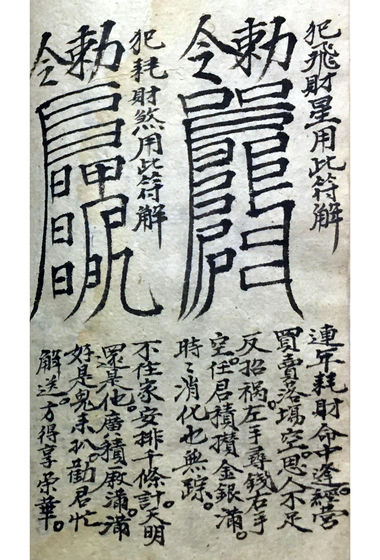 犯飛財星用此符解
勅令
犯耗財煞用此符解
勅令
連年耗財命中逢。經营
買賣落塲空。恩人不足
反招禍左手尋錢右手
空。任君積攢金銀滿。
時々消化也無踪。
不住家安排千條計天明
還化。廣積滿滿
好是鬼來扒。勸君忙
解送方得享榮華。